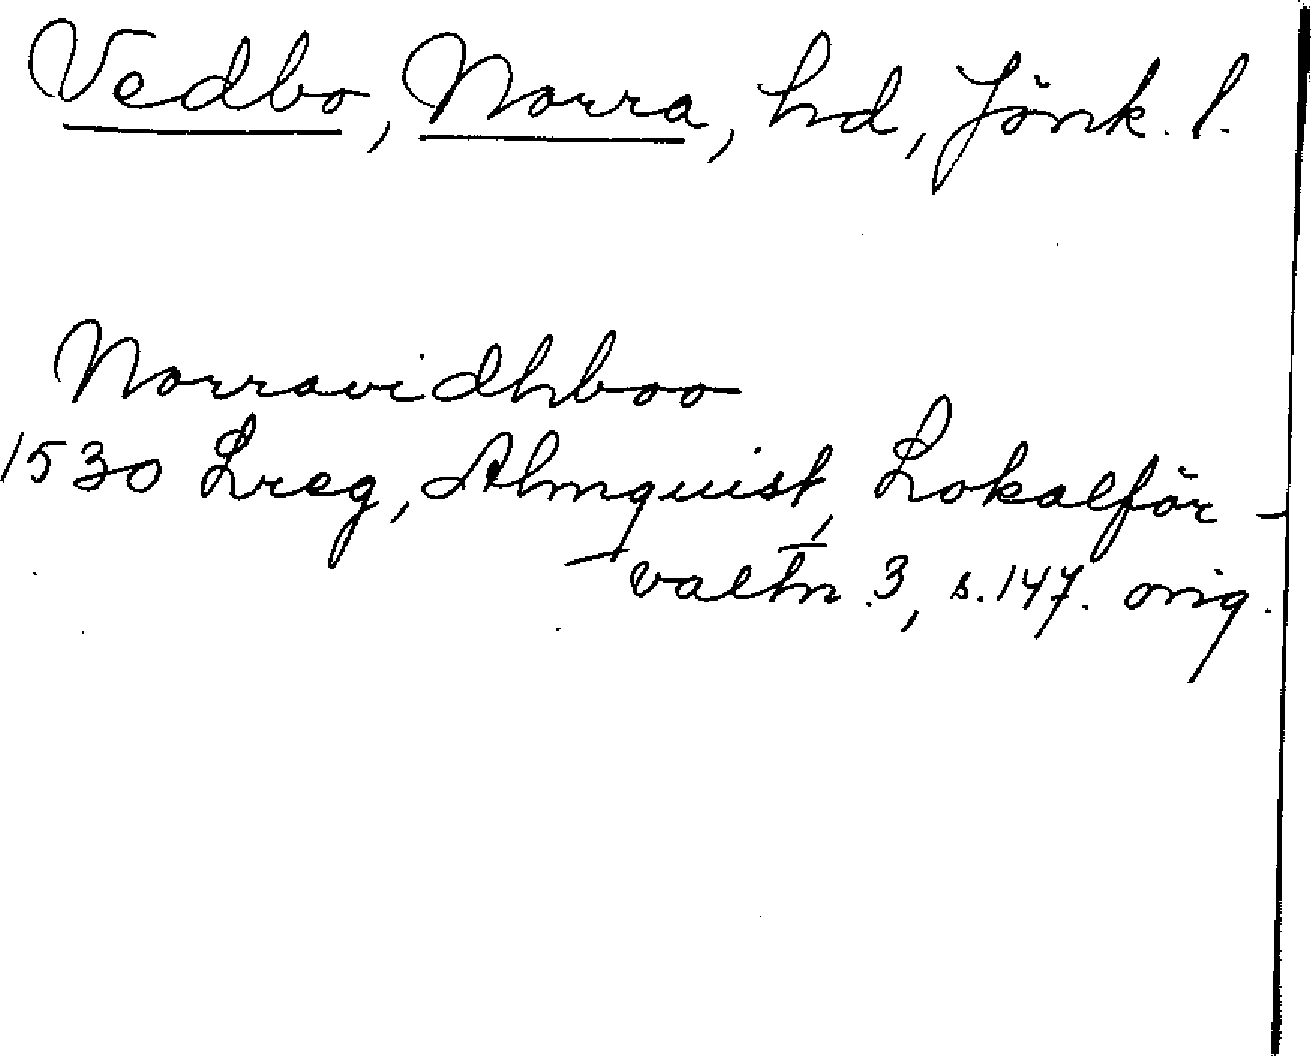 Vedbo, Norra, hd, Jönk. l.
Norravidhboo
1530 Lreg, Almquist, Lokalför-
valtn. 3, s. 147. orig.